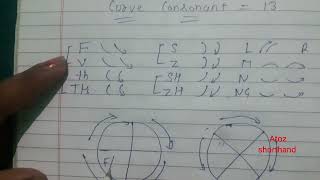 Curve Consonant = 13
F S L R
V Z M
Th SH N
TH ZH NG
F
Atoz
shorthand